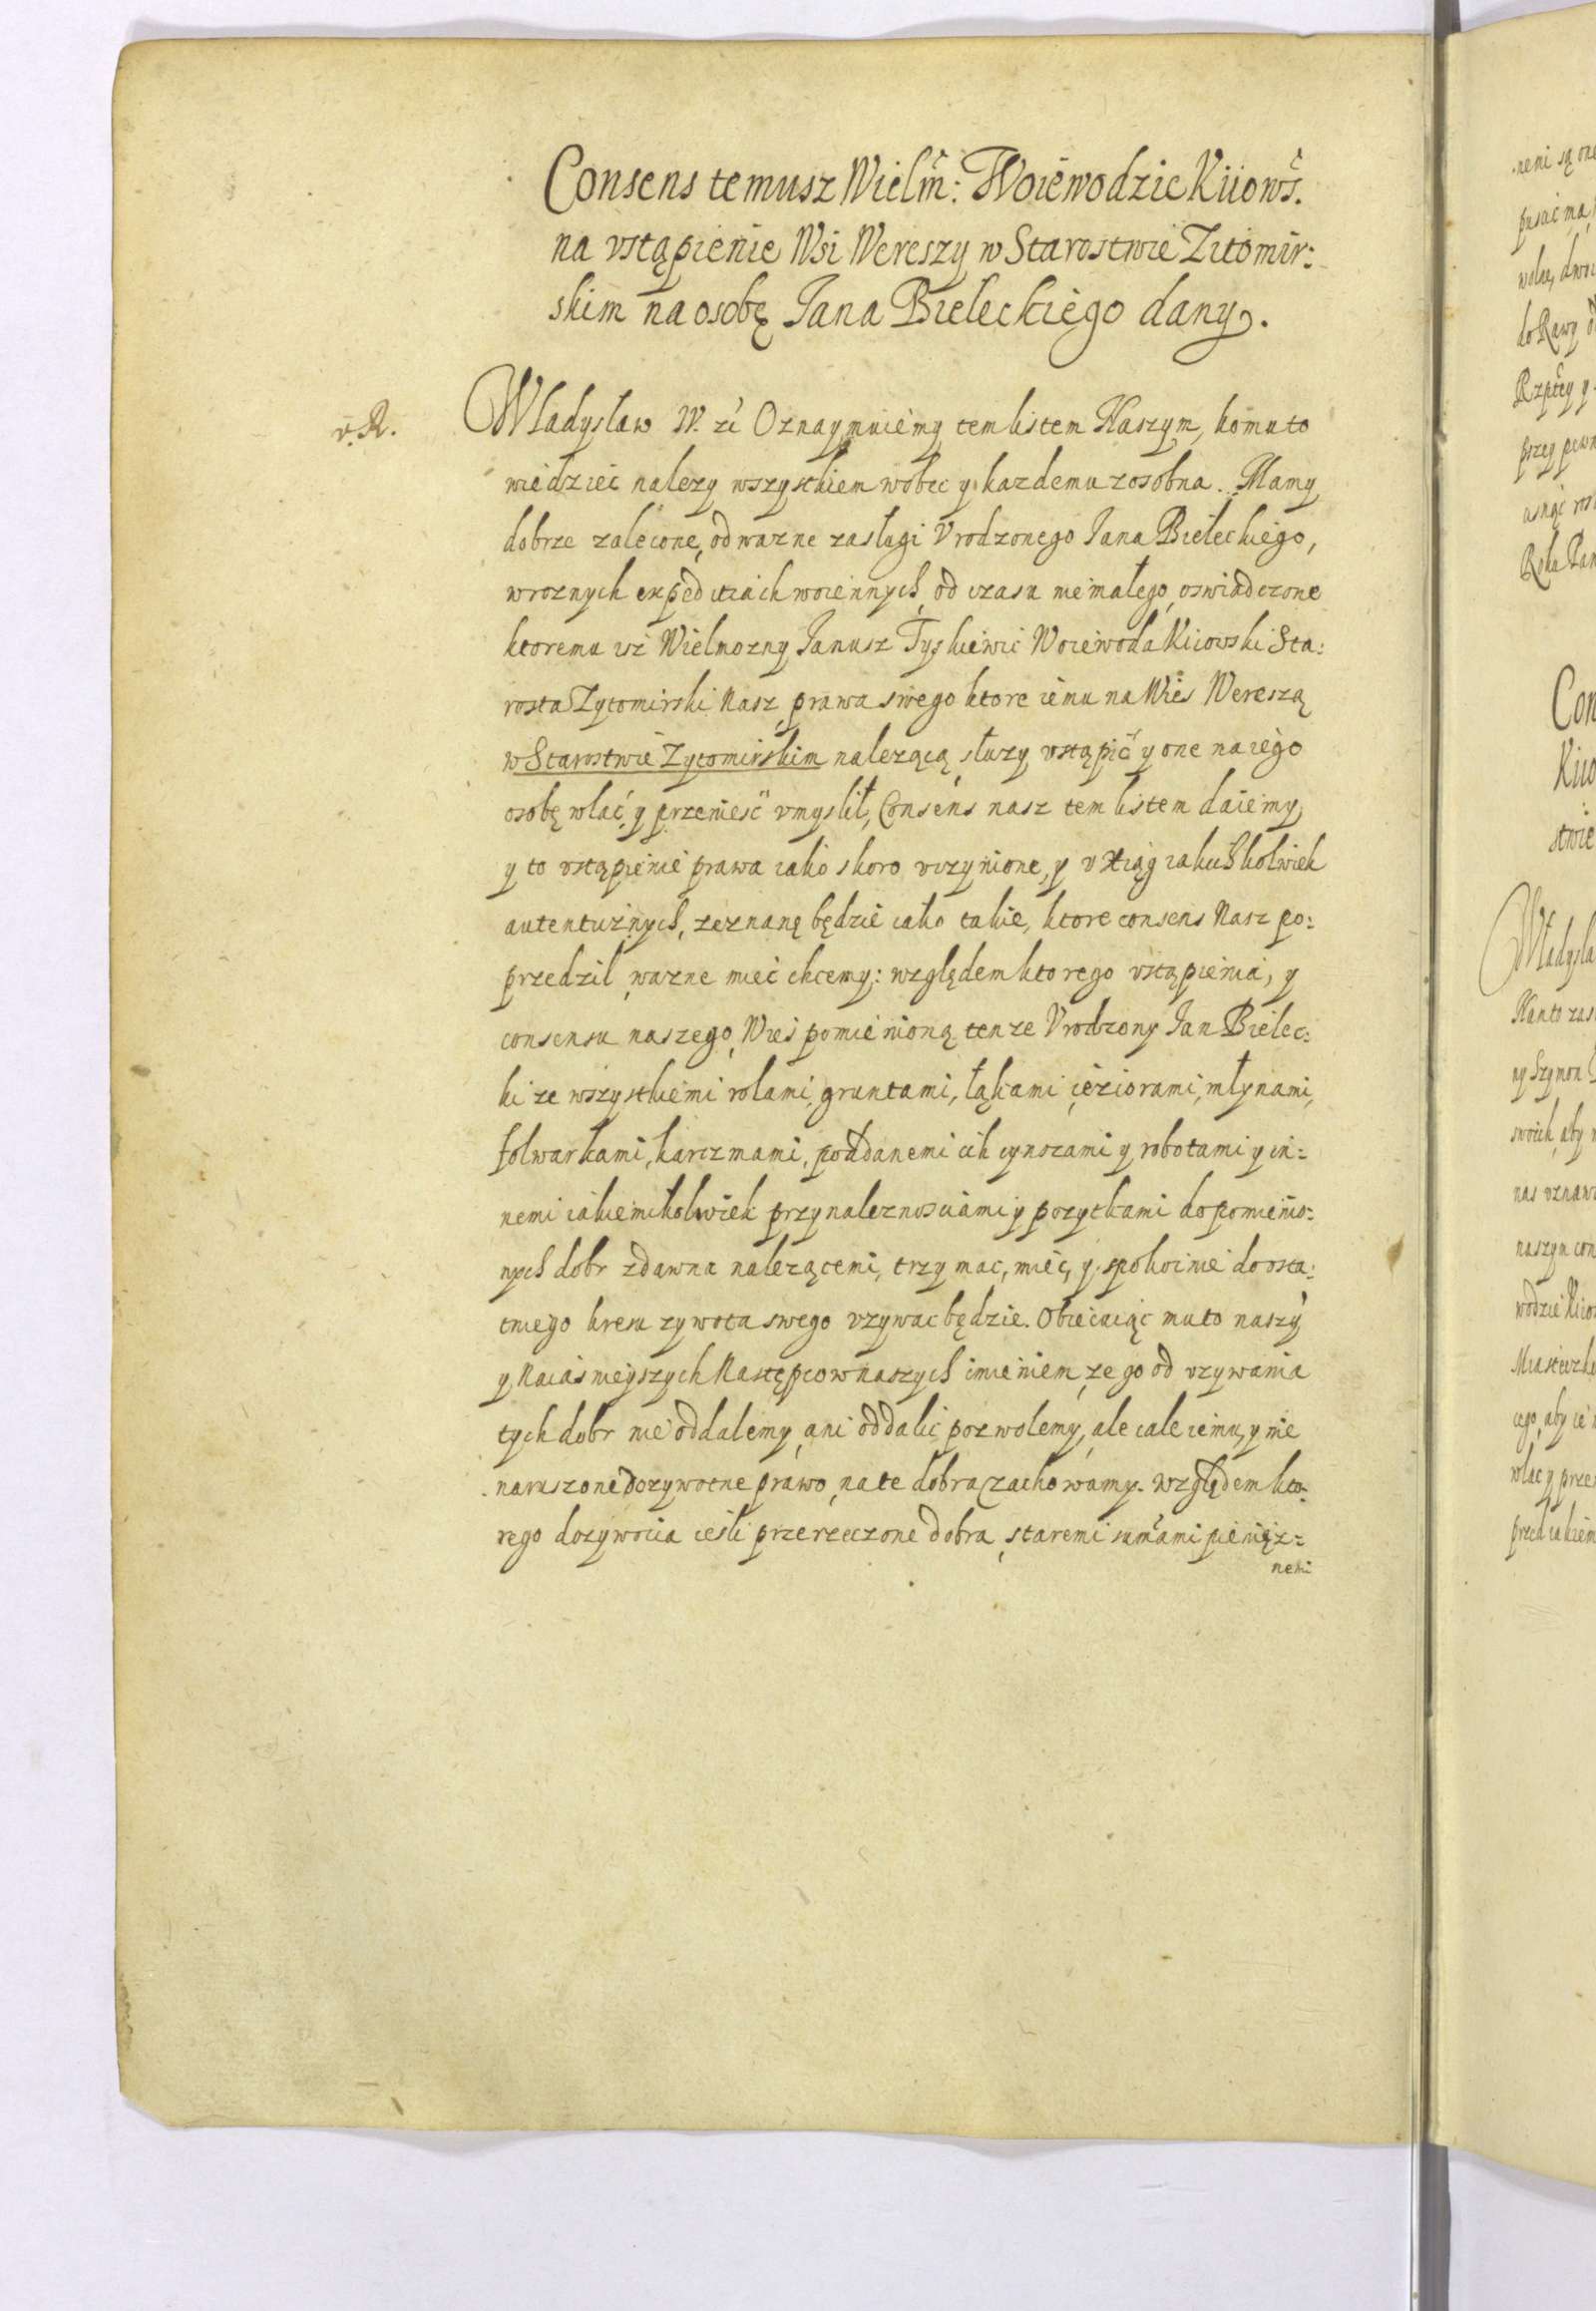 Consens temusz Wielm̃: Woiewodzie Kiiows̃.
na vstąpienie Wsi Wereszy w Starostwie Zitomir:
skim na osobę Jana Bieleckiego dany.
v. R.
Władysław IV. zć Oznaymuiemy tem listem Naszym, komu to
wiedzieć nalezy wszystkiem wobec y kazdemu zosobna. Mamy
dobrze zalecone, odwazne zasługi Vrodzonego Jana Bieleckiego,
wroznych expeditiach woiennych, od czasu niemałego, oswiadczone
ktoremu isz Wielmozny Janusz Tyskiewic Woiewoda Kiiowski Sta:
rosta Zytomirski Nasz, prawa swego ktore iemu na Wies Wereszą
w Starostwie Zytomirskim nalezącą, sluzy vstąpić y one na iego
osobę wlać y przenieść vmyslił, Consens nasz tem listem daiemy,
y to vstąpienie prawa iako skoro vczynione, y v Xiąg iakichkolwiek
autentiznych, zeznanę będzie iako takie, ktore consens Nasz po:
przedzil, wazne mieć chcemy: względem ktorego vstąpienia, y
consensu naszego, Wieś pomienioną tenze Vrodzony Jan Bielec:
ki ze wszystkiemi rolami, gruntami, łąkami, ieziorami, młynami,
folwarkami, karczmami, poddanemi ich czynszami y robotami y in:
nemi iakiemikolwiek przynaleznosciami y pozytkami do pomienio:
nych dobr zdawna nalezącemi, trzymac, mieć, y spokoinie do osta:
tniego kresu zywota swego vzywac będzie. Obiecuiąc mu to naszy̆
y Naiasnieyszych Następcow naszych imieniem, ze go od vzywania
tych dobr nie oddalemy, ani oddalić pozwolemy, ale cale iemu, y nie
naruszone dozywotne prawo, na te dobra zachowamy. Względem kto:
rego dozywocia iesli przerzeczone dobra, staremi sum̃ami pienięz:
nemi